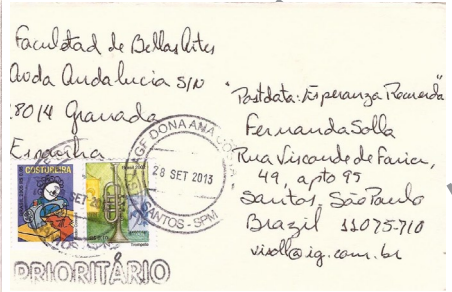 Facultad de Bellas Artes
Avda Andalucia S/N
18014 Granada
Espanha
"Postdata: Esperanza Recuerda"
Fernanda Solla
Rua Visconde de Faria,
49, apto 95
Santos - São Paulo
Brazil 11075-710
visoll@ig.com.br
AGF DONA ANA COSTA
28 SET 2013
SANTOS - SPM
COSTUREIRA
SET 20
PRIORITÁRIO